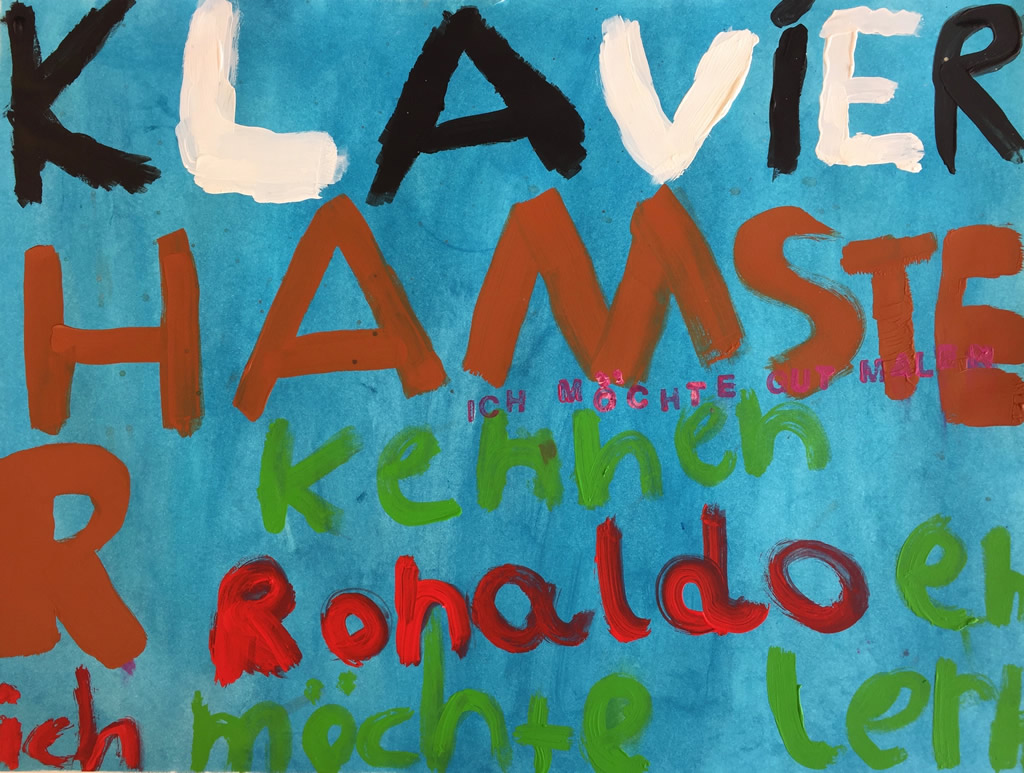 KLAViER
HAMSTE
ICH MÖCHTE GUT MALEN
kennen
R
Ronaldo en
ich möchte lern